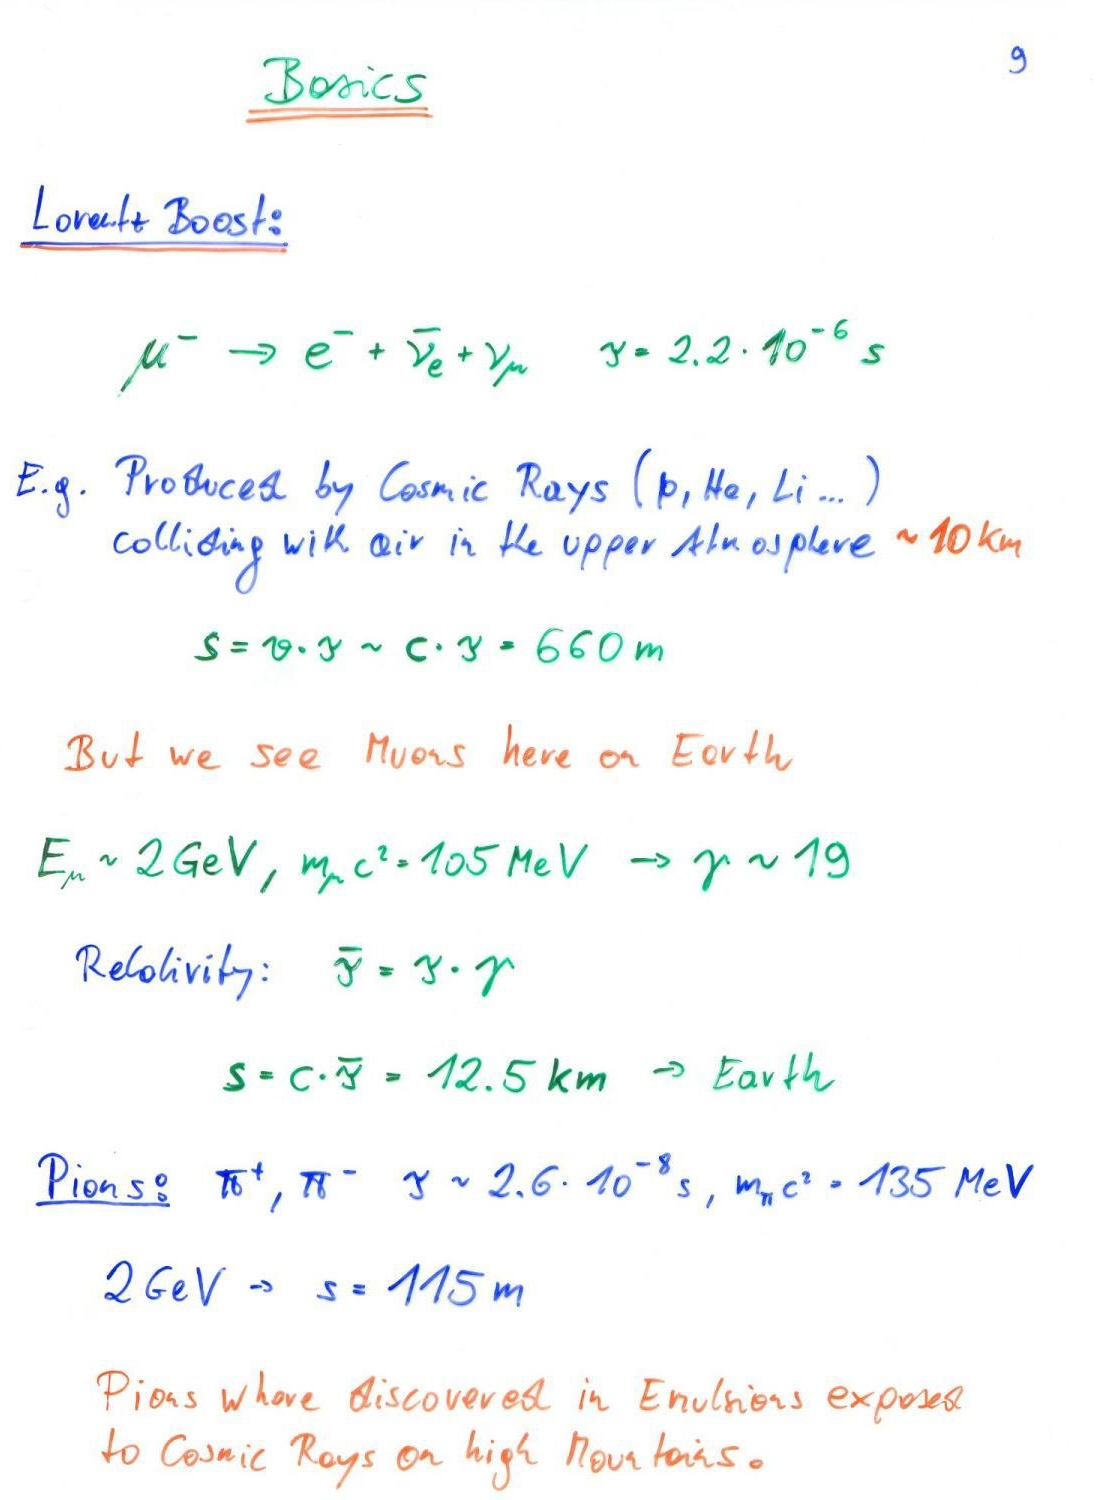 9
Basics
Lorentz Boost:
μ⁻ → e⁻ + ν̄ₑ + ν_μ   τ = 2.2 · 10⁻⁶ s
E.g. Produced by Cosmic Rays (p, He, Li ...)
colliding with air in the upper Atmosphere ~ 10 km
s = v · τ ~ c · τ = 660 m
But we see Muons here on Earth
E_μ ~ 2 GeV, m_μ c² = 105 MeV → γ ~ 19
Relativity: τ̄ = τ · γ
s = c · τ̄ = 12.5 km → Earth
Pions: π⁺, π⁻ τ ~ 2.6 · 10⁻⁸ s, m_π c² = 135 MeV
2 GeV → s = 115 m
Pions where discovered in Emulsions exposed
to Cosmic Rays on high Mountains.